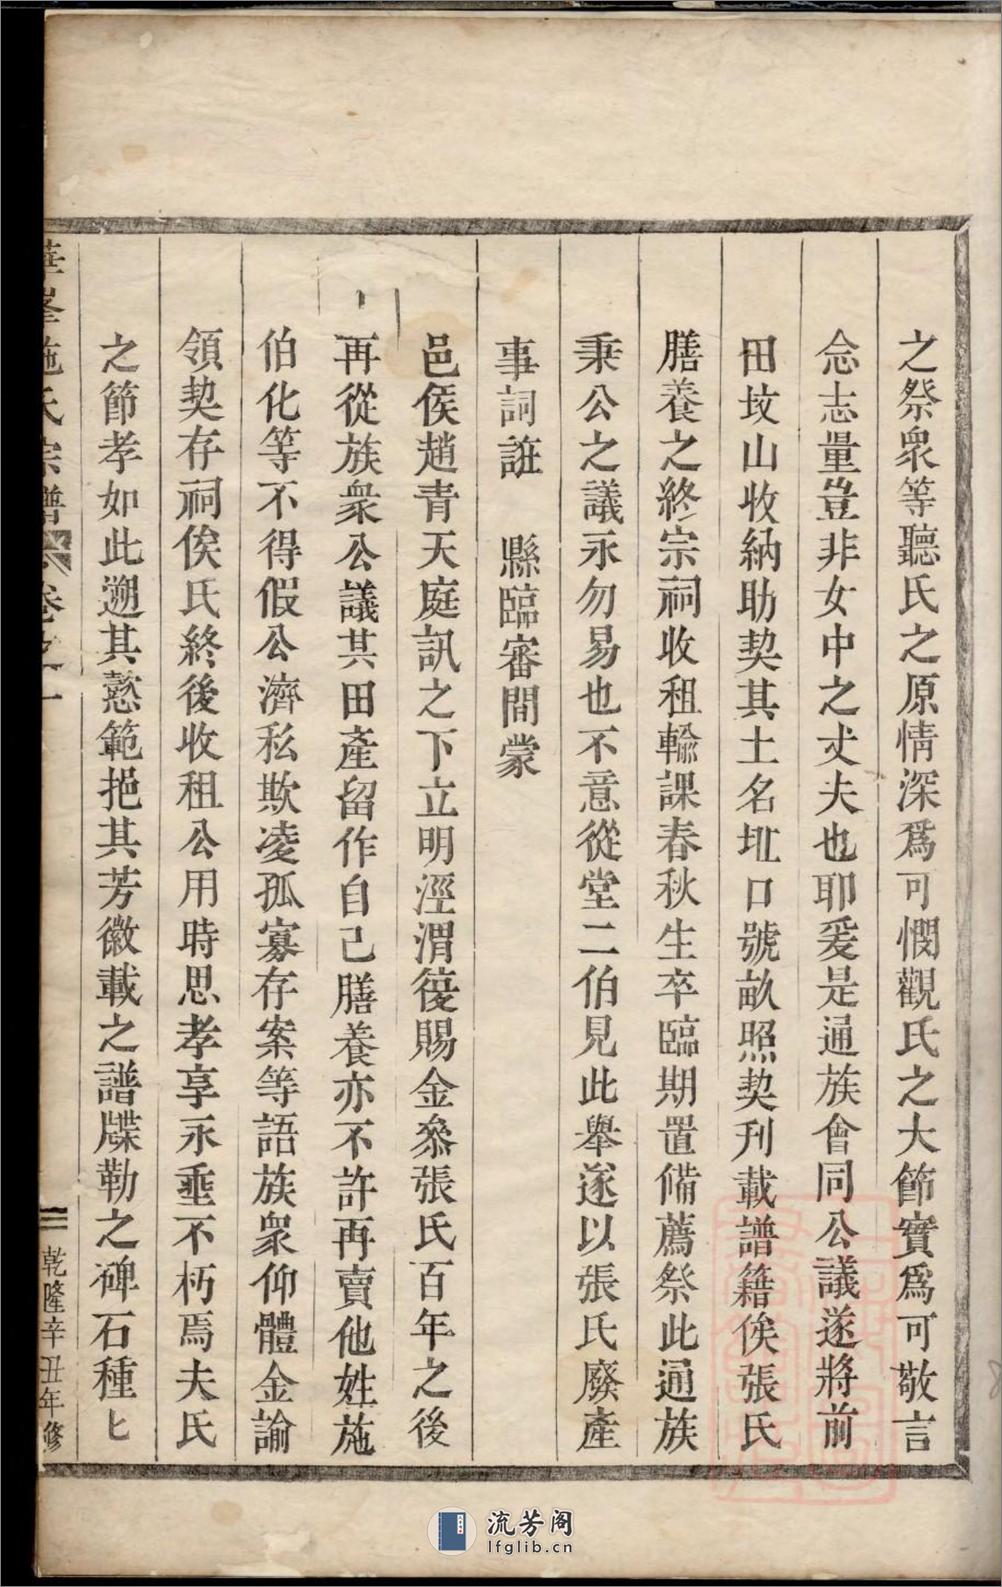 之祭眾等聽氏之原情深爲可憫觀氏之大節實爲可敬言
念志量豈非女中之丈夫也耶爰是通族會同公議遂將前
田坟山收納助契其土名坵口號畝照契刊載譜籍俟張氏
膳養之終宗祠收租輸課春秋生卒臨期置備薦祭此通族
秉公之議永勿易也不意從堂二伯見此舉遂以張氏廢產
事詞誑　縣臨審間蒙
邑侯趙青天庭訊之下立明涇渭復賜金叅張氏百年之後
再從族衆公議其田產留作自己膳養亦不許再賣他姓施
伯化等不得假公濟私欺凌孤寡存案等語族衆仰體金諭
領契存祠俟氏終後收租公用時思孝享永垂不朽焉夫氏
之節孝如此遡其懿範挹其芳徽載之譜牒勒之碑石種匕
華峯施氏宗譜 卷之一
二 乾隆辛丑年修
流芳阁
lfglib.cn